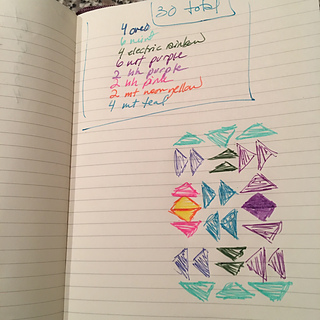 30 total
4 oreo
6 mint
4 electric rainbow
6 mt purple
2 uh purple
2 uh pink
2 mt neon yellow
4 mt teal